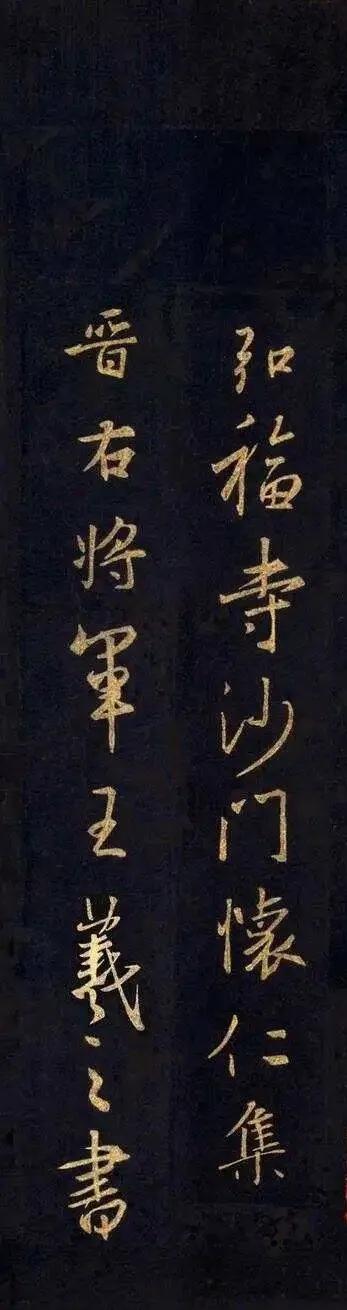 弘福寺沙门懷仁集
晋右将軍王羲之書